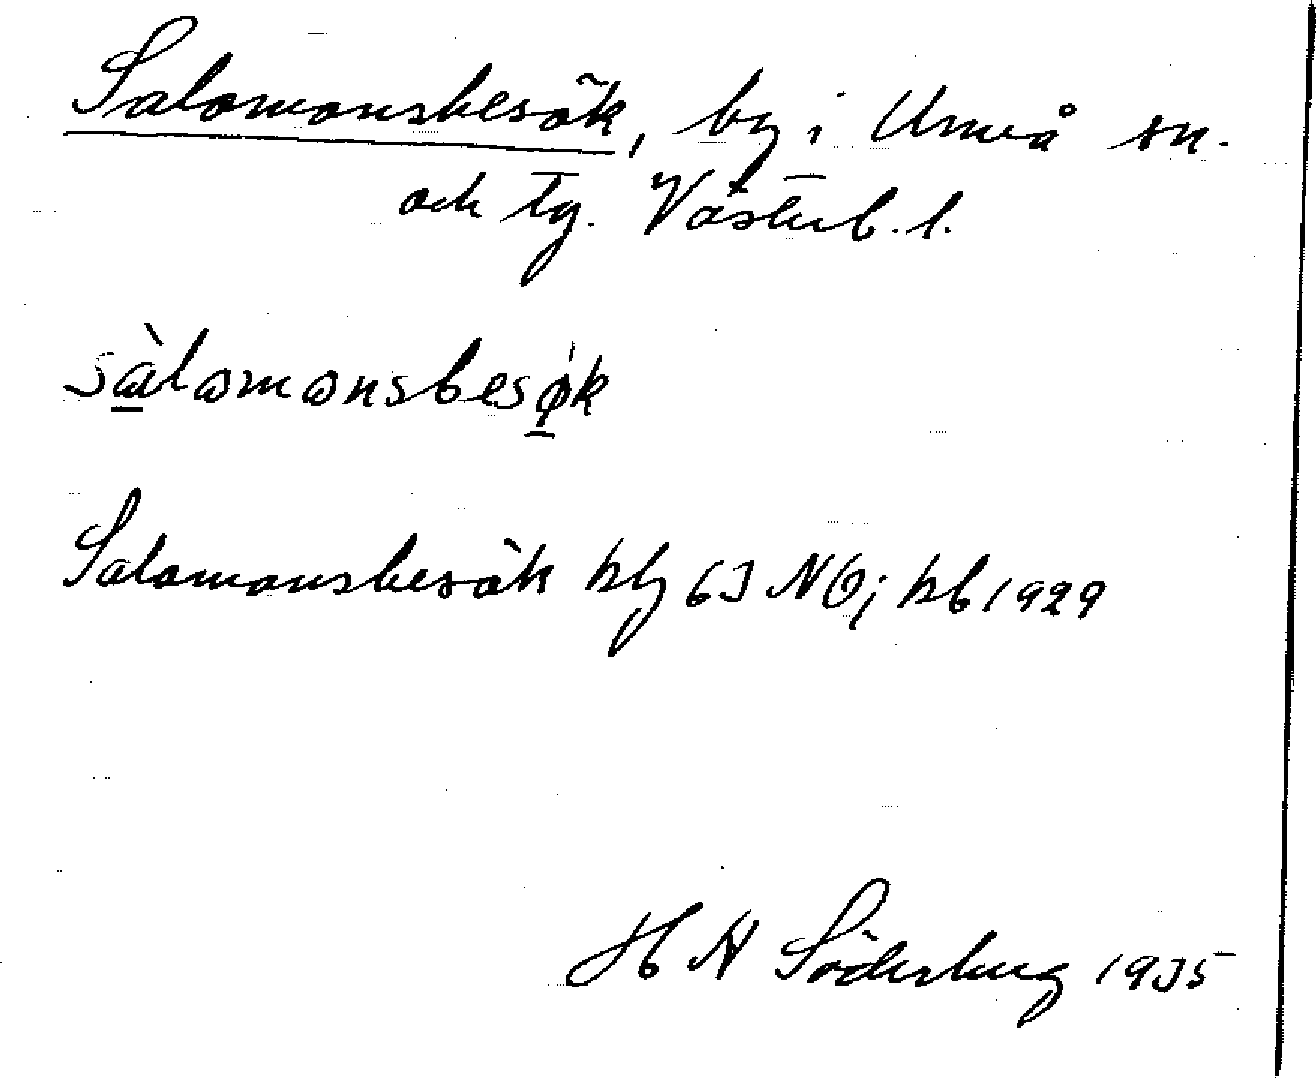 Salomonsbesök, by i Umeå sn.
och tg. Västerb. l.
sàlomonsbesø̀k
Salomonsbesök kbl 63 NO; kb 1929
H N Söderberg 1935